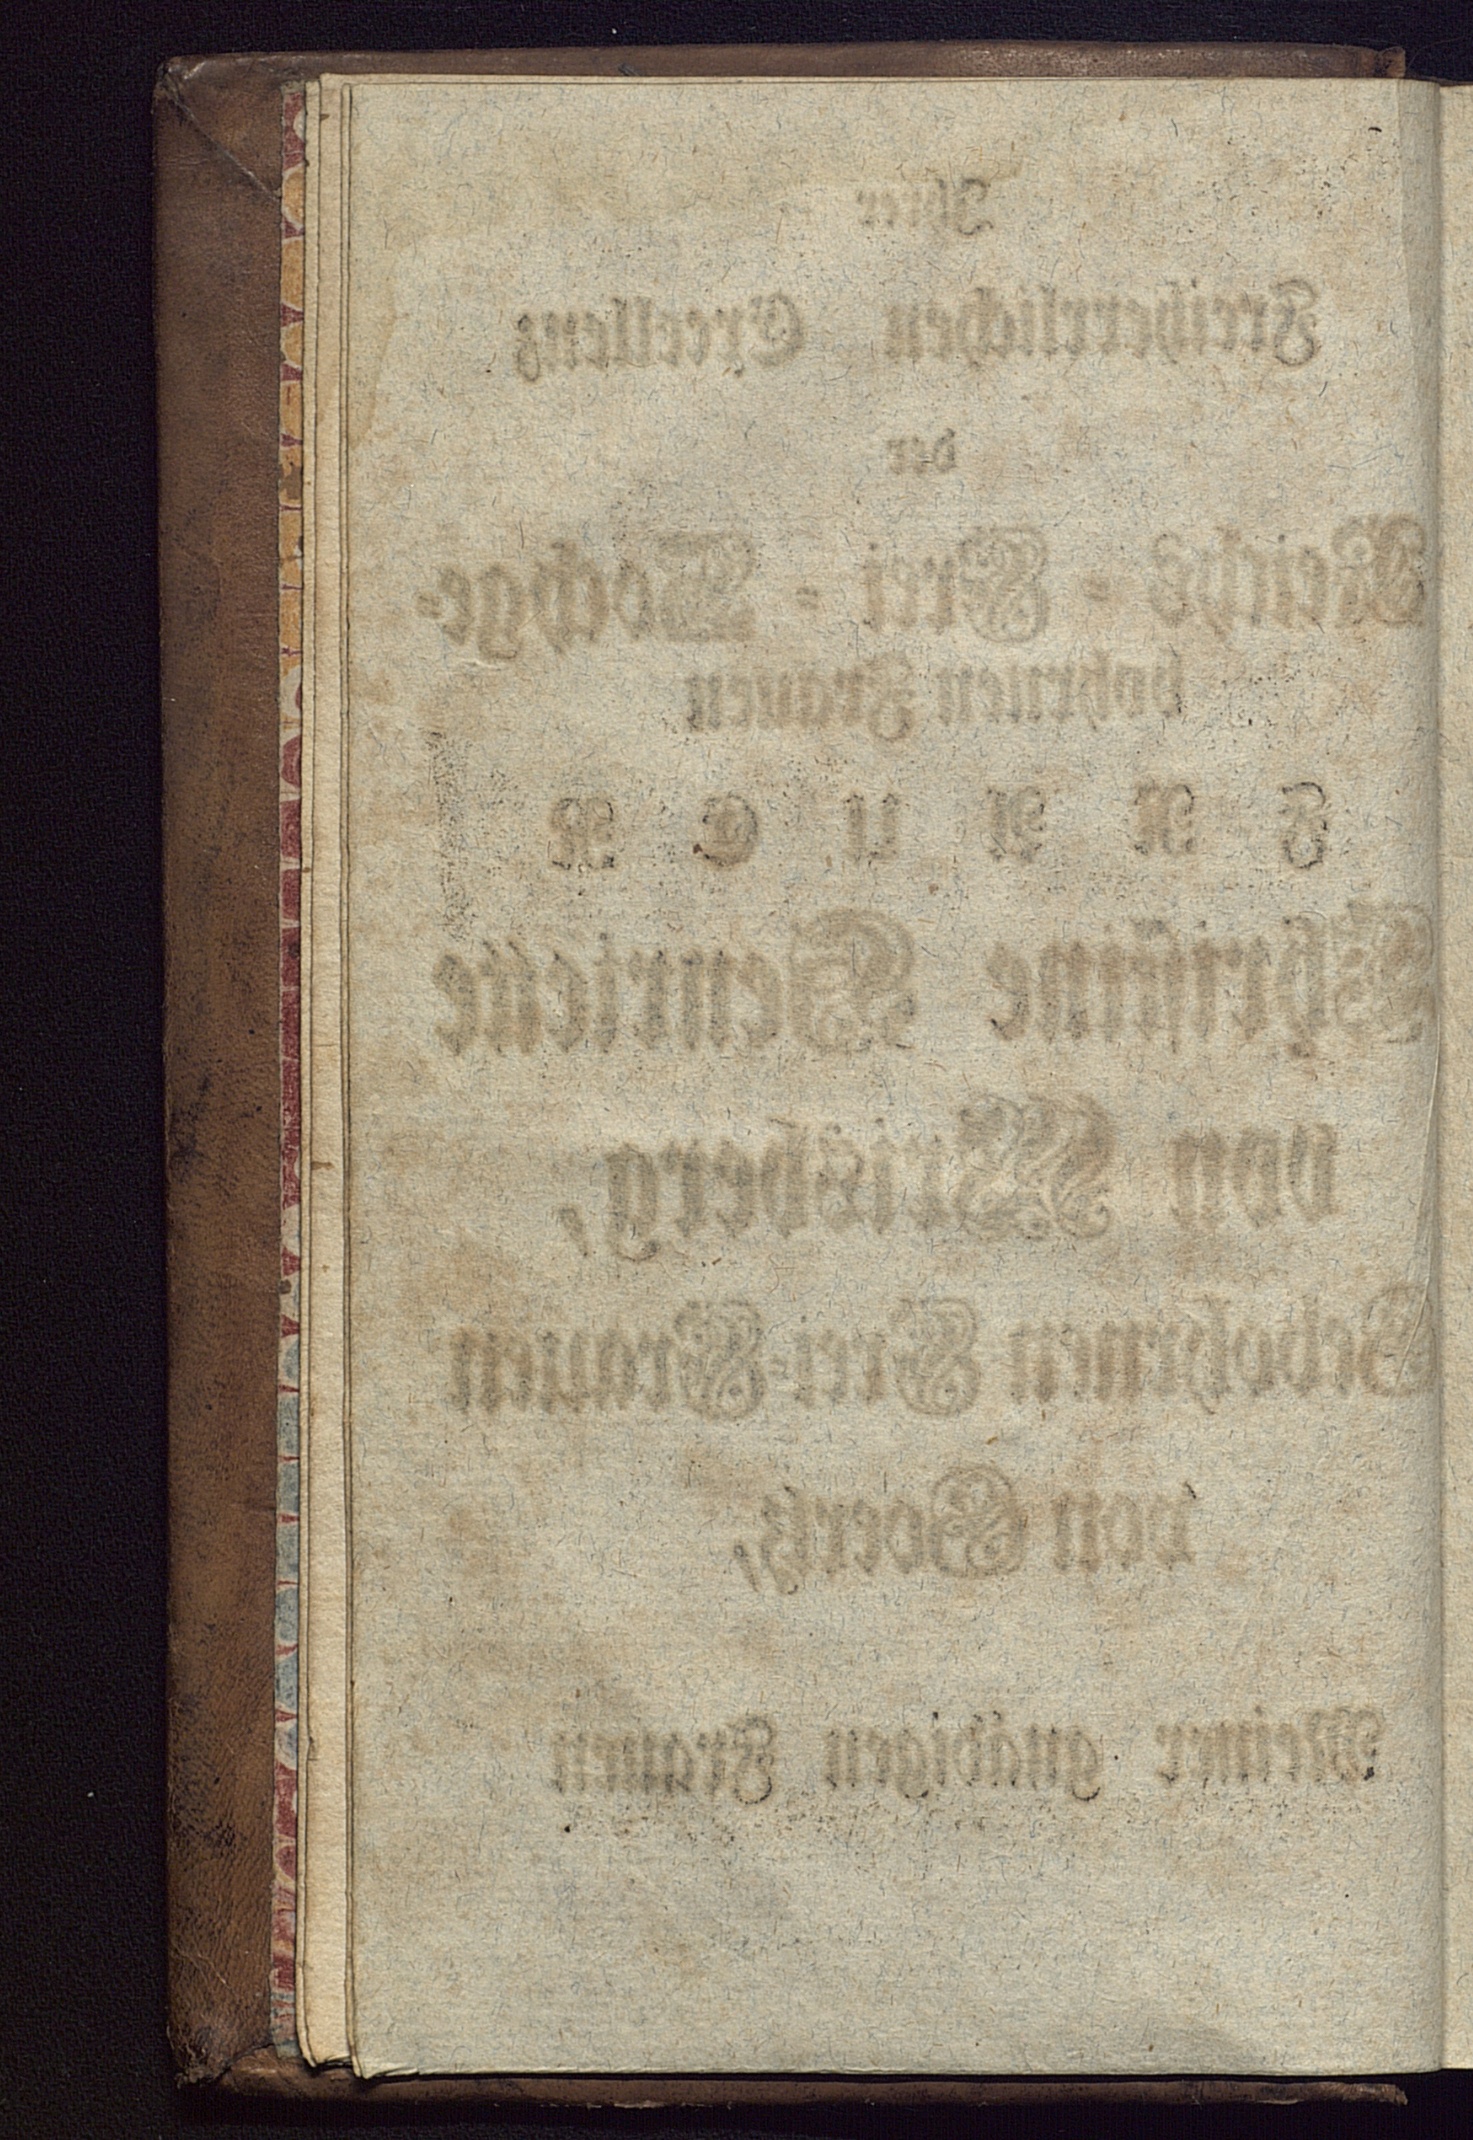 Ihrer
Freiherrlichen Excellenz
der
Reichs - Frei - Hochge-
bohrnen Frauen
F R A U E N
Christine Henriette
von Wrisberg,
Gebohrnen Frei-Frauen
von Goertz,
Meiner gnädigen Frauen